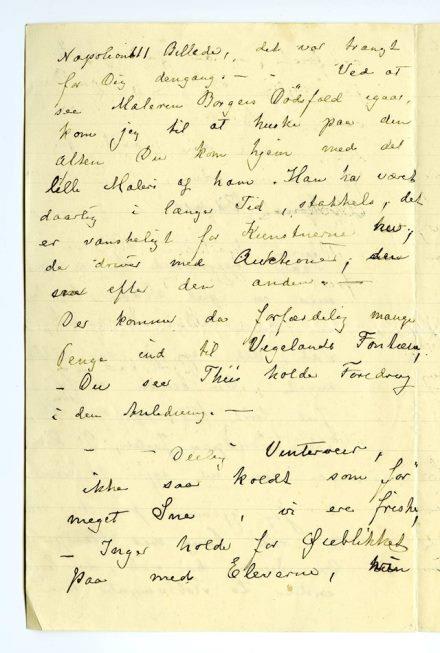 Napoleon III Billede, det var trangt
for Dig dengang. – – Ved at
see Maleren Borgens Dødsfald igaar,
kom jeg til at huske paa den
Aften Du kom hjem med det
lille Maleri af ham. Han har været
daarlig i længre Tid, stakkels, det
er vanskeligt for Kunstnerne nu,
de driver med Auktioner, den
ene efter den anden. –
Der kommer da forfærdelig mange
Penge ind til Vegelands Fontæne,
– Du seer Thiis holde Foredrag
i den Anledning. –
– – Deilig Vinterveir,
ikke saa koldt som før
meget Sne, vi ere friske,
– Inger holder for Øieblikket
paa med Eleverne, hun